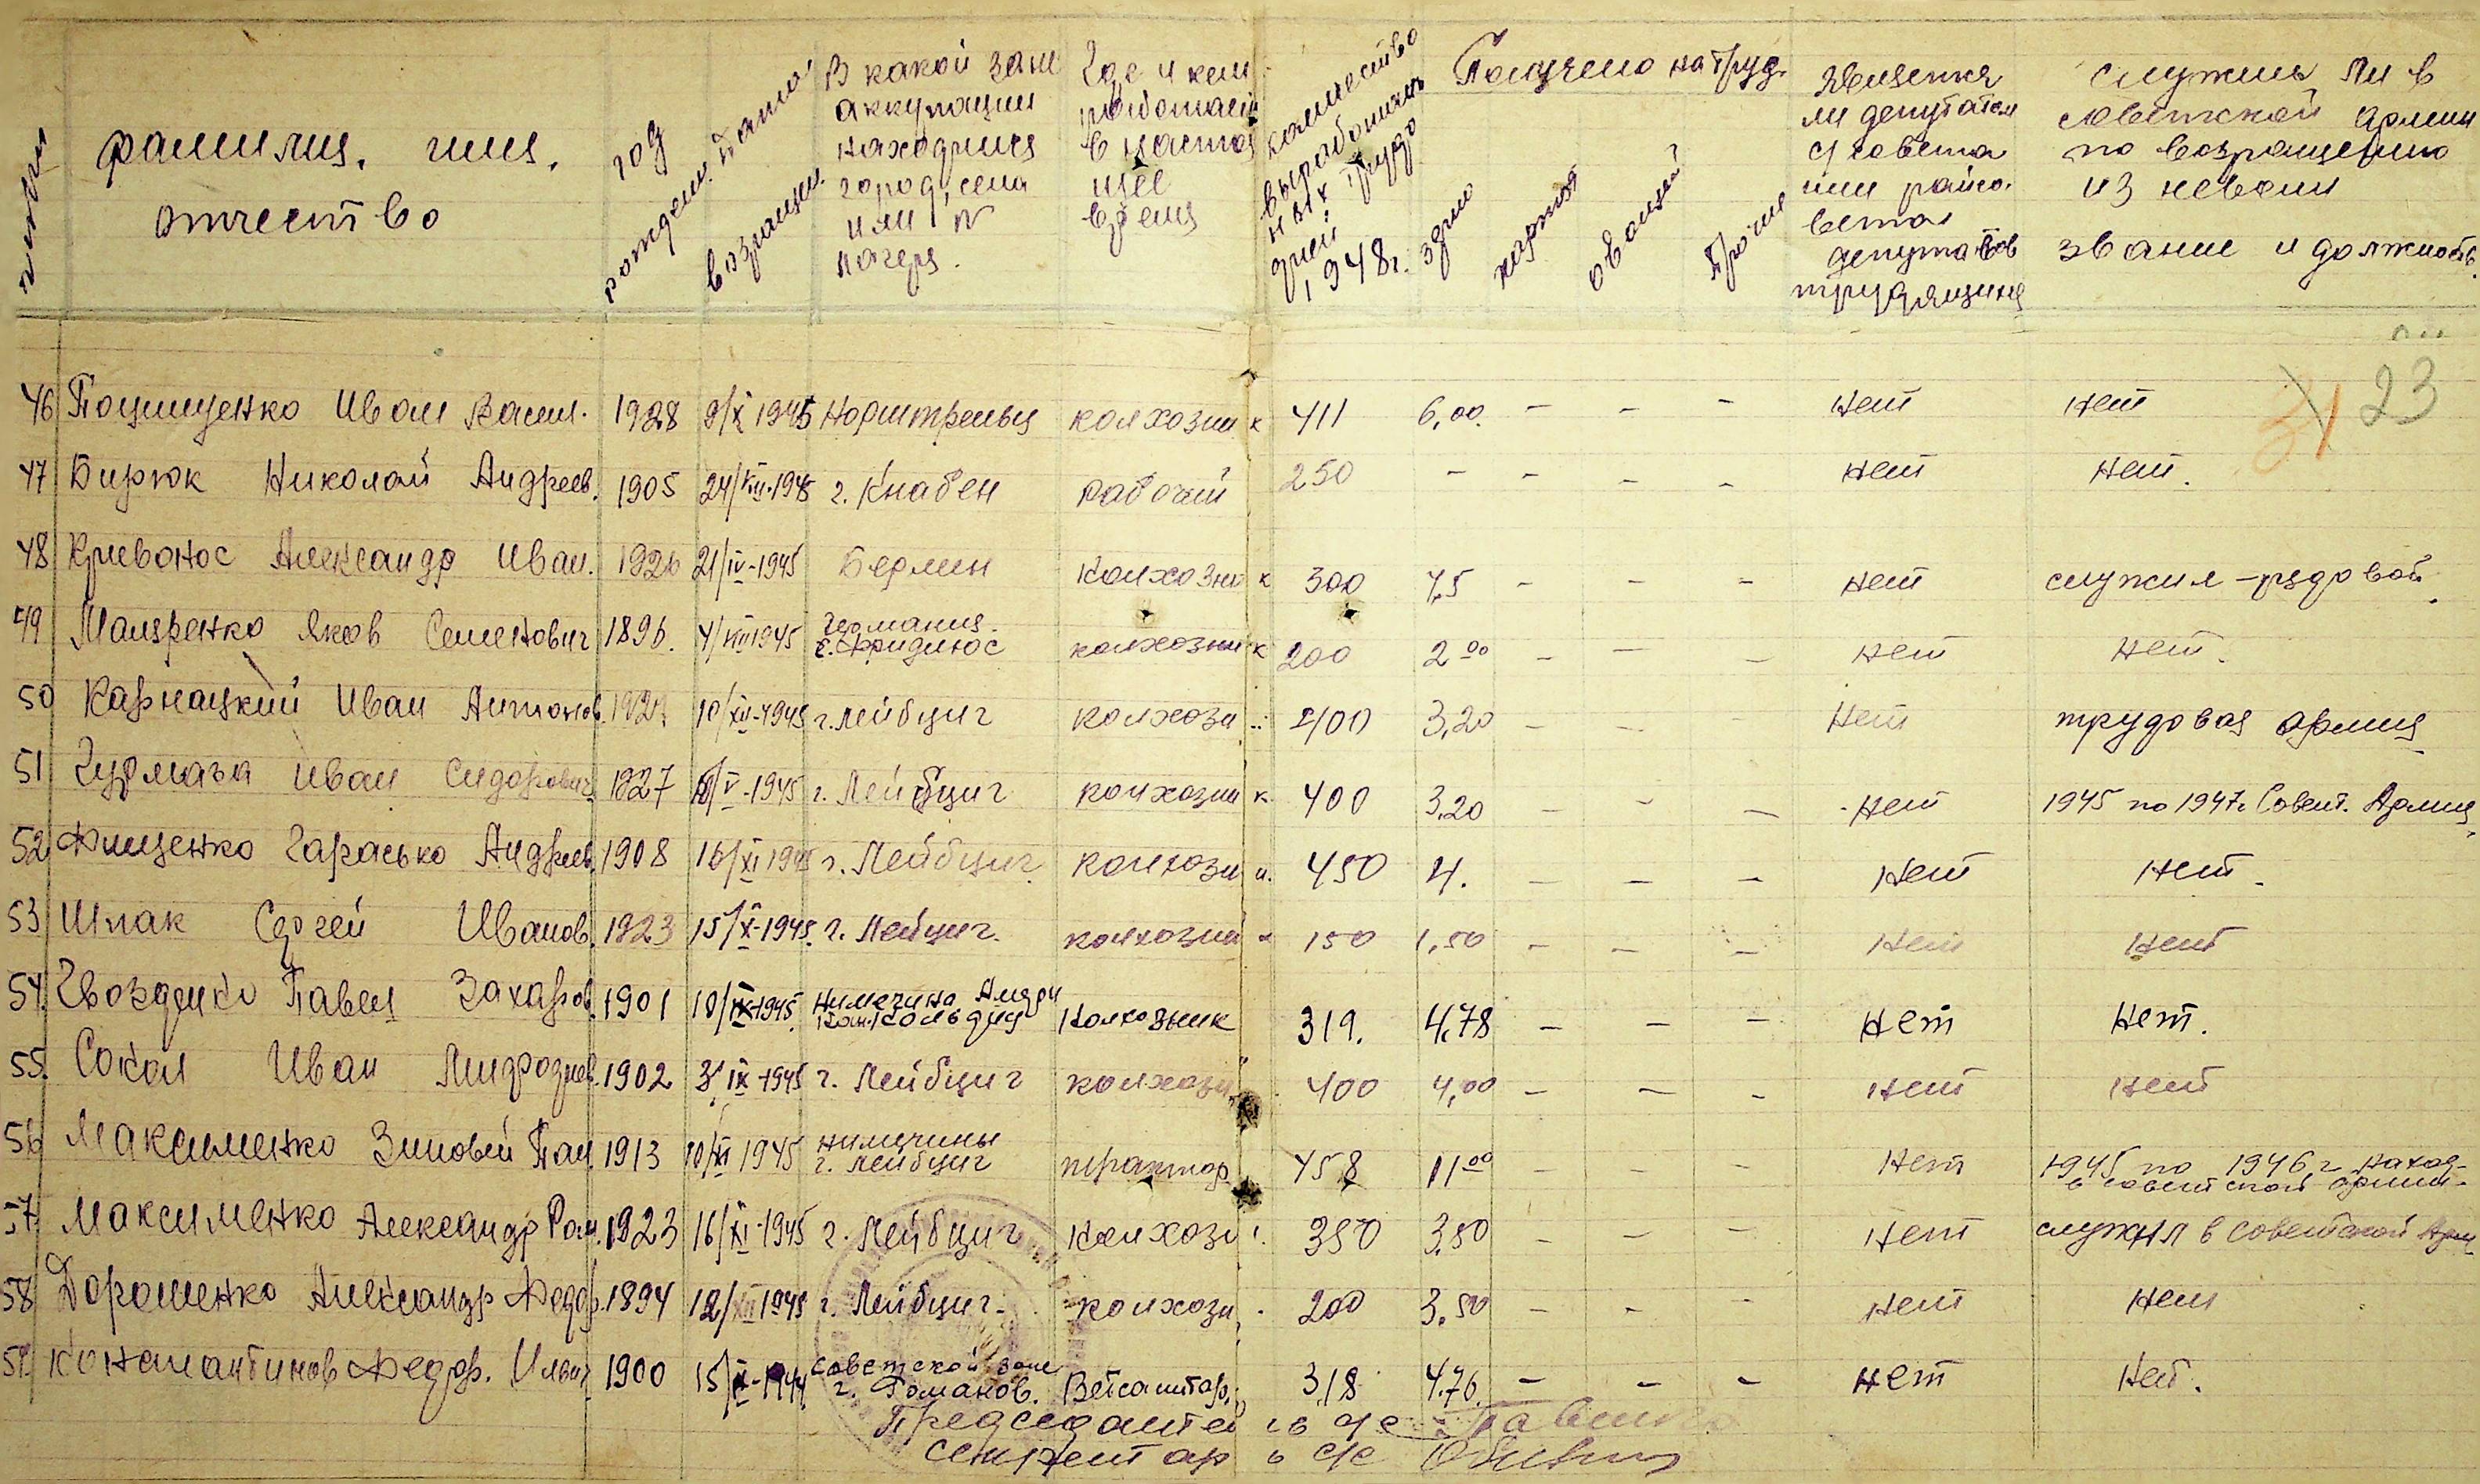 фамилия, имя, отчество год рождения Дата возращен. В какой зоне аккупации находился город, села или № лагеря. Где и кем работает в настоящее время количество выработанных трудодней 1948 г. Получено на труд. зерно картоя овощей Прочие Является ли депутатом с/совета или райсовета депутатов трудящихся служил ли в советской армии по возращению из неволи звание и должность
23
46 Иван Васил. 1928 9/X 1945 колхозник 411 6,00. – – – нет нет
47 Бирюк Николай Андреев. 1905 24/VII-1945 г. Кнабен рабочий 250 – – – – нет нет.
48 Кривонос Александр Иван. 1926 21/IV-1945 Берлин колхозник 300 7,5 – – – нет служил – рядовой.
49 Яков Семенович 1896. 4/VIII 1945 Германия. колхозник 200 2 00 – – – нет нет.
50 Карнацкий Иван Антонов. 10/XII-1945 г. Лейбциг колхозн 400 3,20 – – – нет трудовая армия
51 Гурмаза Иван Сидорович 1927 10/V-1945 г. Лейбциг колхозник 400 3,20 – – – нет 1945 по 1947г. Совет. Армия
52 Фищенко Гарасько Андреев. 1908 16/XI 1945 г. Лейбциг колхозн 450 4. – – – нет нет.
53 Шпак Сергей Иванов. 1923 15/X-1945. г. Лейциг. колхозник 150 1,50 – – – нет нет
54. Гвозденко Павел Захаров. 1901 10/IX-1945. Колхозник 319. 4,78 – – – нет нет.
55. Сокол Иван Мифодиев. 1902 3/IX-1945 г. Лейбциг колхозн 400 4,00 – – – нет нет
56 Максименко Зиновей Пан. 1913 10/XI 1945 нимечины г. Лейбциг трактор 458 11 00 – – – нет 1945 по 1946 г. наход- в советской армии-
57. Максименко Александр Ром. 1923 16/XI-1945 г. Лейбциг Колхозн 350 3,50 – – – нет служил в советской Арм
58 Дорошенко Александр Федор. 1894 12/XII 1945 г. Лейбциг. колхозн 200 3,50 – – – нет нет
59. Константинов Федор. Ильич 1900 15/X-1944 советской зоне г. Романов. Ветсанитар. 318 4,76. – – – нет Нет.
Председатель с/с
секретарь с/с